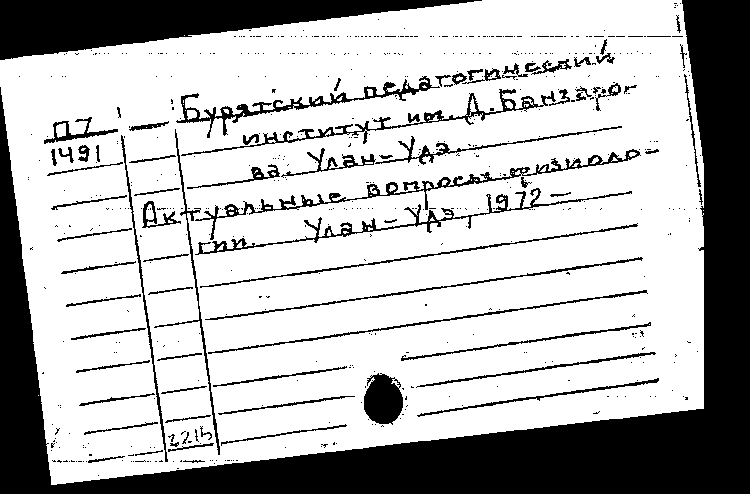 П7 — Бурятский педагогический
1491 институт им. Д. Банзаро-
ва. Улан-Удэ.
Актуальные вопросы физиоло-
гии. Улан-Удэ, 1972 —